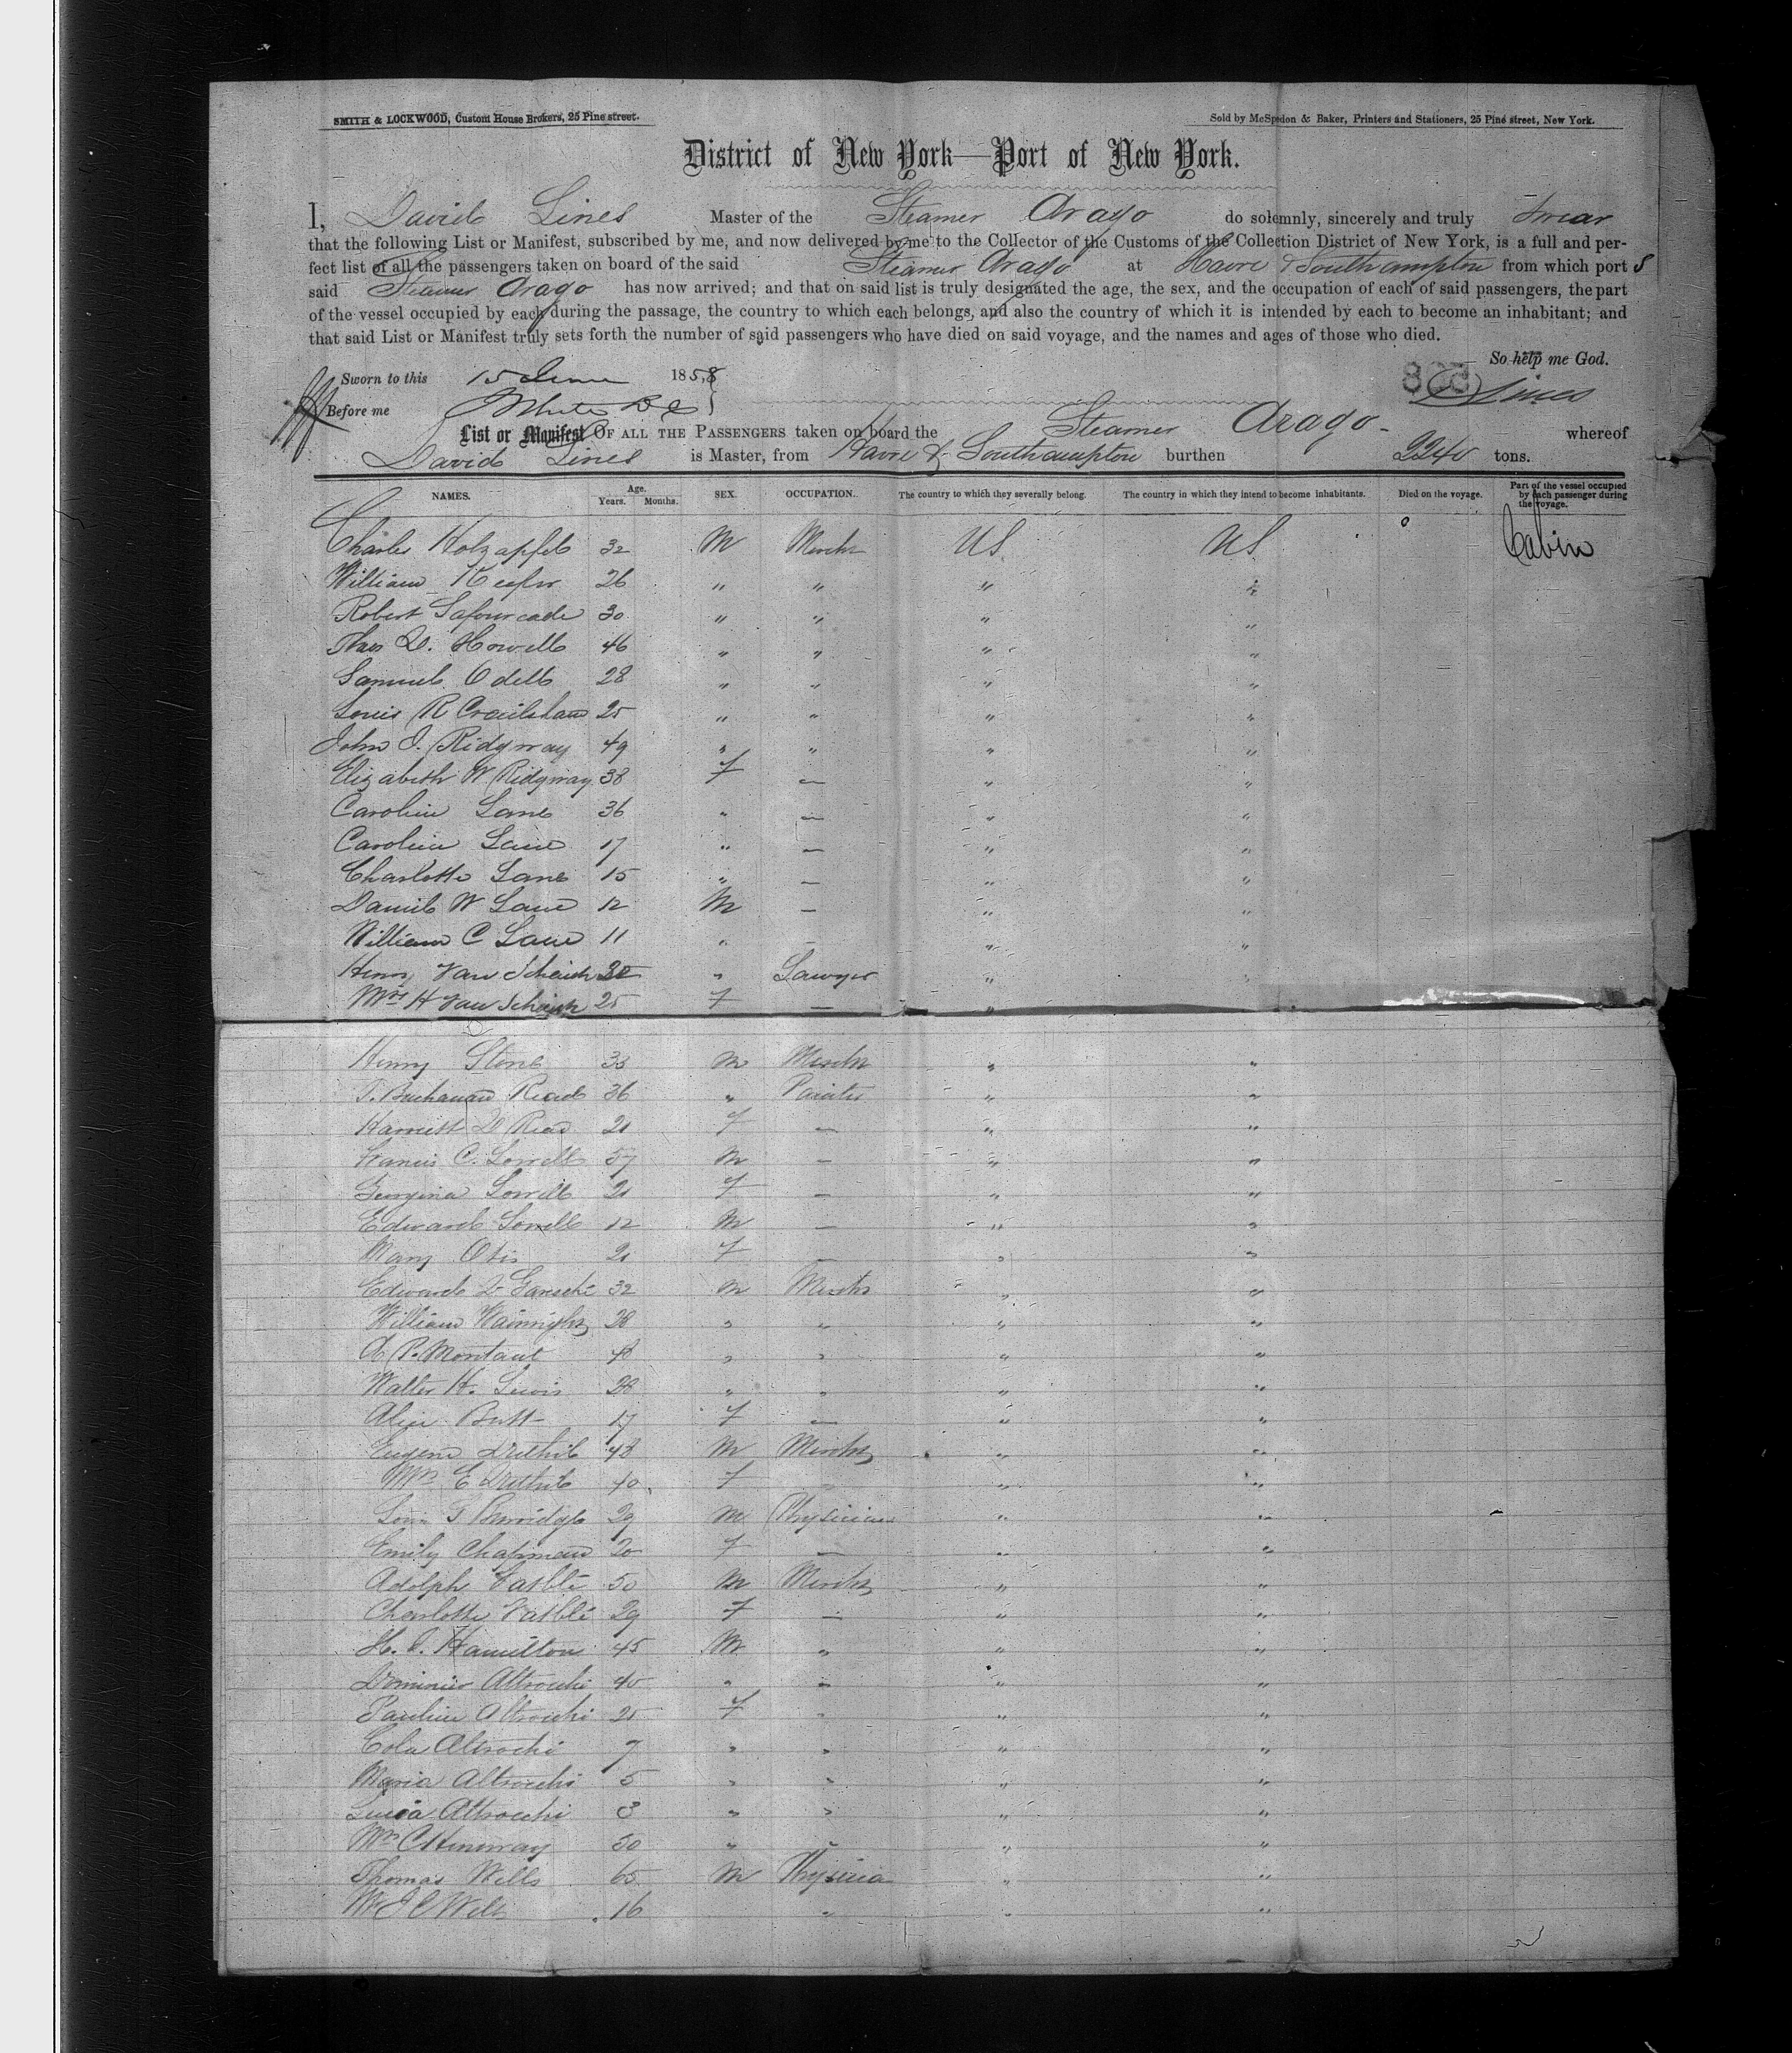 SMITH & LOCKWOOD, Custom House Brokers, 25 Pine street.
Sold by McSpedon & Baker, Printers and Stationers, 25 Pine street, New York.
District of New York—Port of New York.
I, David Lines Master of the Steamer Arago do solemnly, sincerely and truly swear
that the following List or Manifest, subscribed by me, and now delivered by me to the Collector of the Customs of the Collection District of New York, is a full and per-
fect list of all the passengers taken on board of the said Steamer Arago at Havre & Southampton from which port s
said Steamer Arago has now arrived; and that on said list is truly designated the age, the sex, and the occupation of each of said passengers, the part
of the vessel occupied by each during the passage, the country to which each belongs, and also the country of which it is intended by each to become an inhabitant; and
that said List or Manifest truly sets forth the number of said passengers who have died on said voyage, and the names and ages of those who died.
So help me God.
Sworn to this 15 June 1858
808
D Lines
Before me White
List or Manifest OF ALL THE PASSENGERS taken on board the Steamer Arago - whereof
David Lines is Master, from Havre & Southampton burthen 2240 tons.
NAMES. Age. Years. Months. SEX. OCCUPATION. The country to which they severally belong. The country in which they intend to become inhabitants. Died on the voyage. Part of the vessel occupied by each passenger during the voyage.
Charles Holzapfel 32 M Mercht US US 0 Cabin
William 26 " " " "
Robert Lafourcade 30 " " " "
Thos D. Howell 46 " " " "
Samuel Odell 28 " " " "
Louis R 25 " " " "
John J. Ridgway 49 " " " "
Elizabeth W Ridgway 38 F — " "
Caroline Lane 36 " — " "
Caroline Lane 17 " — " "
Charlotte Lane 15 " — " "
Daniel W Lane 12 M — " "
William C Lane 11 " — " "
Henry Van Schaick 30 " Lawyer " "
Mrs H Van Schaick 25 F — "
Henry Stone 33 M Mercht " "
T. Buchanan Read 36 " Painter " "
Harriett D Read 21 F — " "
Francis C. Lowell 57 M — " "
Georgina Lowell 21 F — " "
Edward Lowell 12 M — " "
Mary Otis 21 F — " "
Edward Garesché 32 M Mercht " "
William Wainright 28 " " " "
A P. Montant 48 " " " "
Walter H. Lewis 28 " " " "
Alice Butt 17 F — " "
Eugene Duthil 48 M Mercht " "
Mrs E Duthil 40 F " "
Louis T 29 M Physician " "
Emily Chapman 20 F — " "
Adolph 50 M Mercht " "
Charlotte 29 F — " "
H. J. Hamilton 45 M " " "
Altrocchi 40 " " " "
Pauline Altrocchi 25 F " " "
Cola Altrochi 7 " " " "
Maria Altrocchi 5 " " " "
Lucia Altrocchi 3 " " " "
Mrs C Hemway 50 " " " "
Thomas Wells 65 M Physicia " "
16 " " "